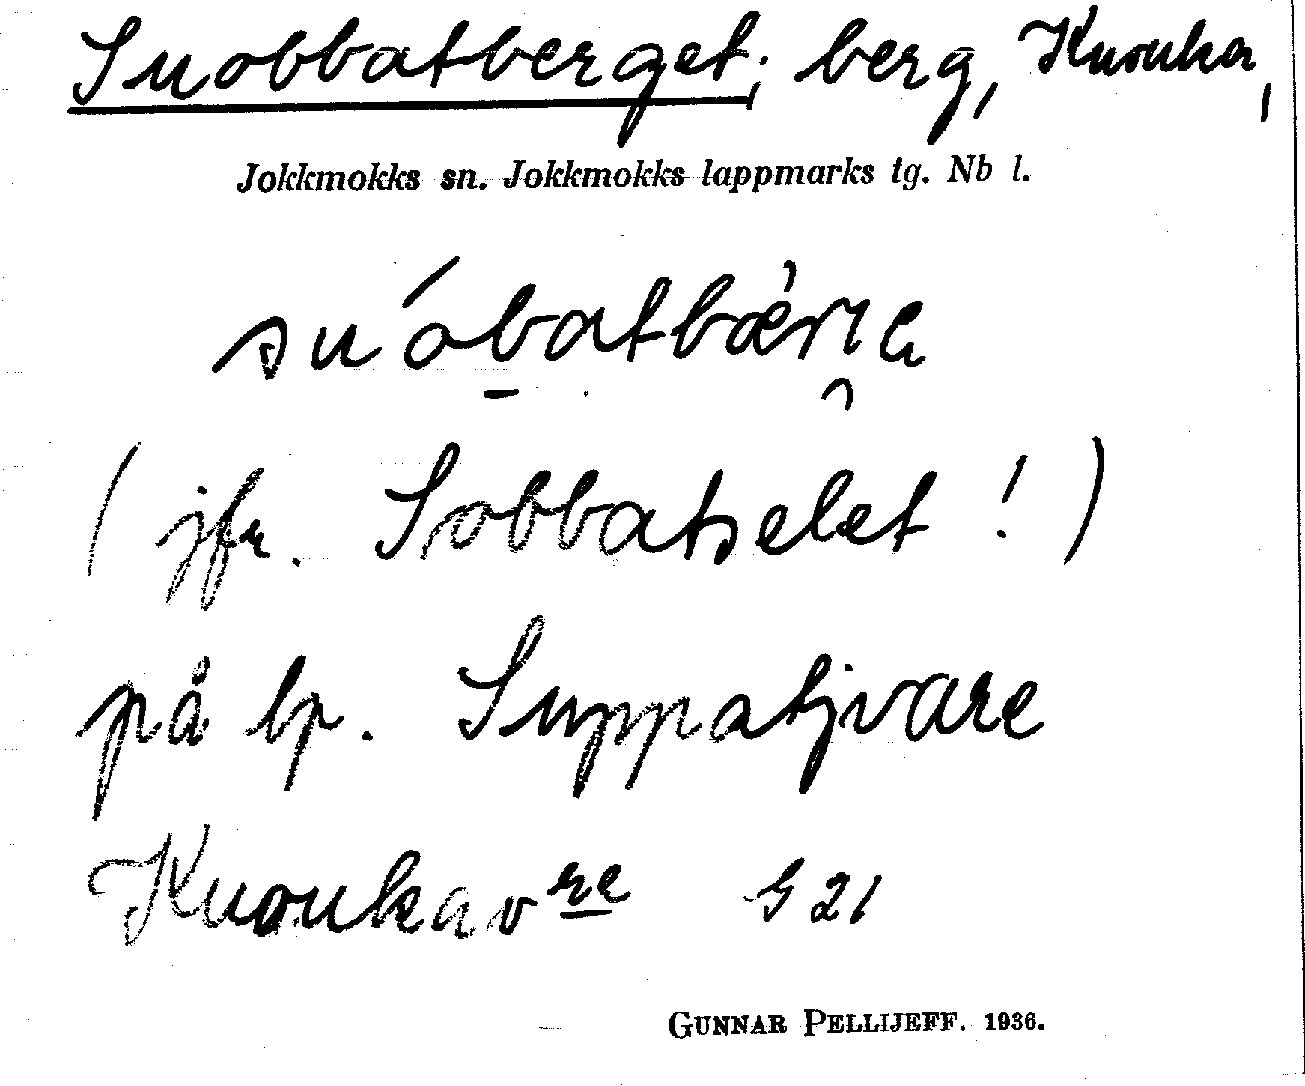 Suobbatberget; berg, Kuouka,
Jokkmokks sn. Jokkmokks lappmarks tg. Nb l.
suóbatbæ̀rra
(jfr. Sobbatselet!)
på lp. Suppatjvare
Kuoukavre G 21
GUNNAR PELLIJEFF. 1936.